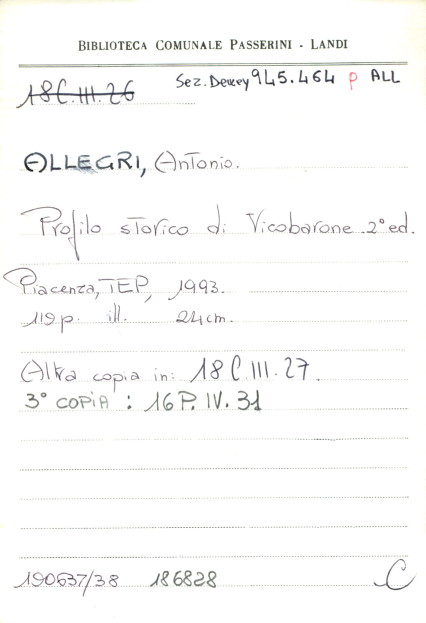 BIBLIOTECA COMUNALE PASSERINI - LANDI
18C.III.26 Sez. Dewey 945.464 p ALL
ALLEGRI, Antonio.
Profilo storico di Vicobarone. 2° ed.
Piacenza, TEP, 1993.
119 p. ill. 24cm.
Altra copia in: 18 C III. 27.
3° COPIA : 16 P. IV. 31
190637/38 186828 C